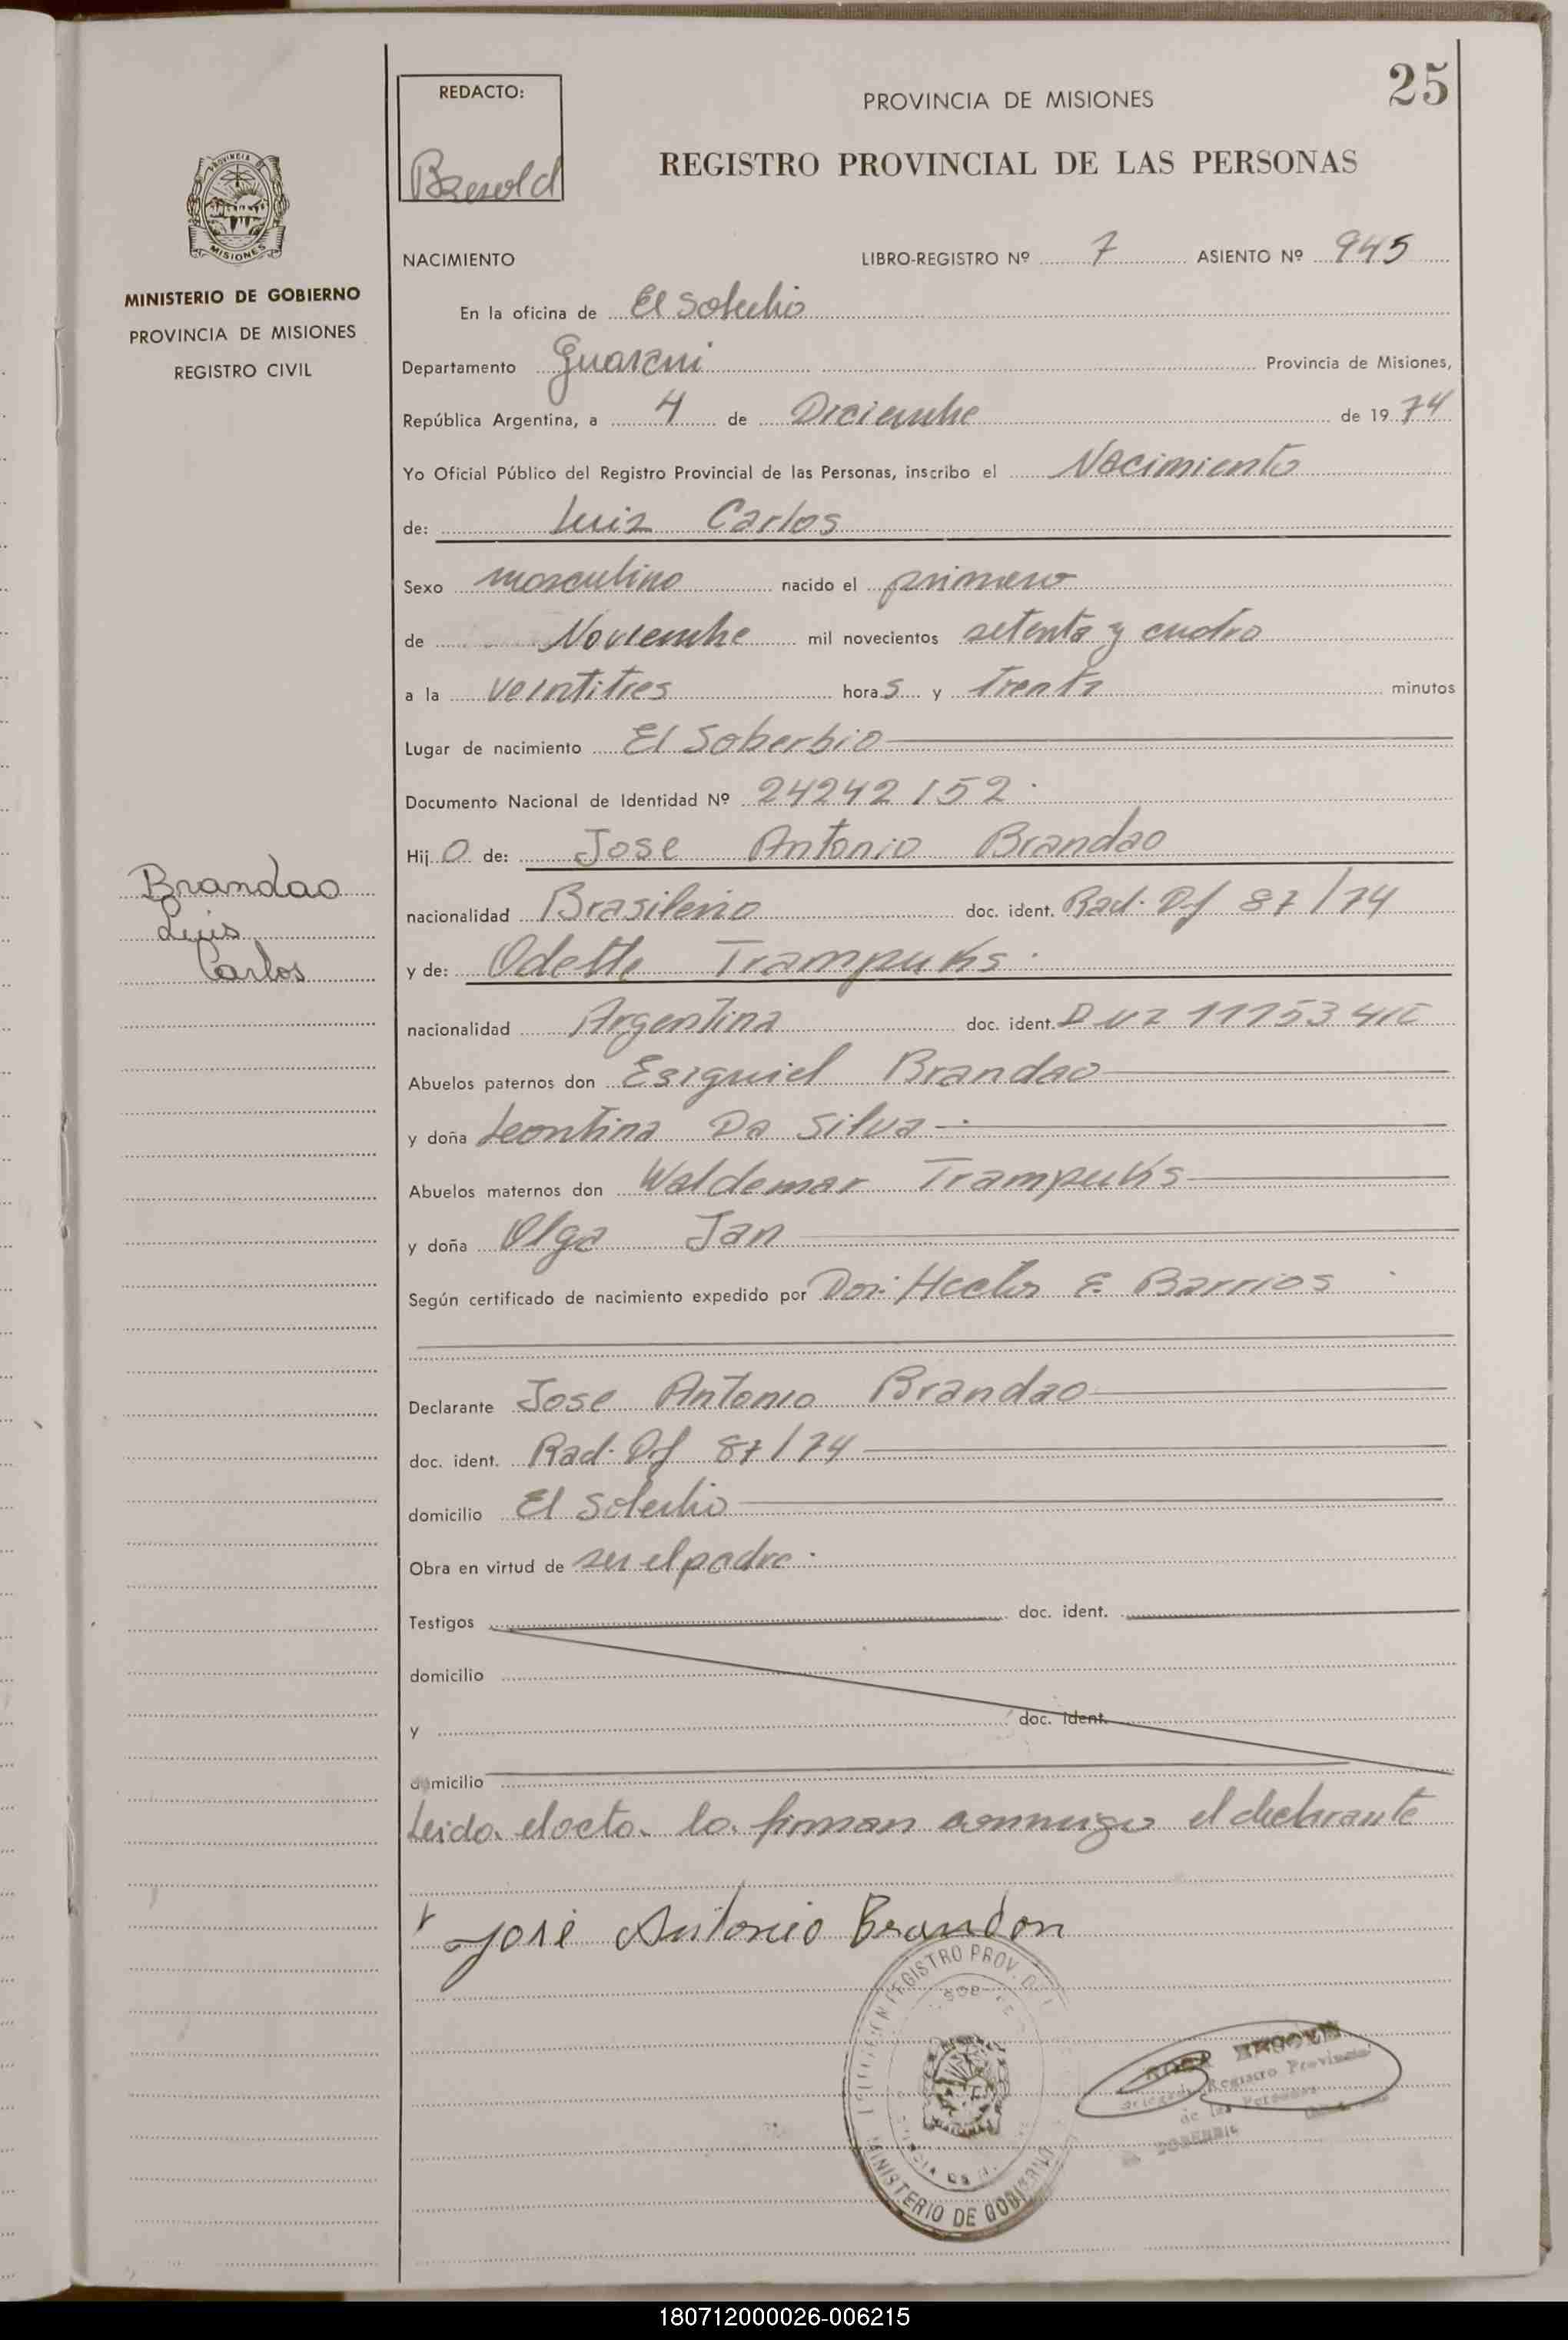 25
REDACTO:
PROVINCIA DE MISIONES
REGISTRO PROVINCIAL DE LAS PERSONAS
PROVINCIA DE MISIONES
MINISTERIO DE GOBIERNO
PROVINCIA DE MISIONES
REGISTRO CIVIL
NACIMIENTO LIBRO-REGISTRO Nº 7 ASIENTO Nº 945
En la oficina de El Soberbio
Departamento Guarani Provincia de Misiones,
República Argentina, a 4 de Diciembre de 1974
Yo Oficial Público del Registro Provincial de las Personas, inscribo el Nacimiento
de: Luiz Carlos
Sexo masculino nacido el primero
de Noviembre mil novecientos setenta y cuatro
a la veintitres horas y Trenta minutos
Lugar de nacimiento El Soberbio
Documento Nacional de Identidad Nº 24242152
Hijo de: Jose Antonio Brandao
Brandao
Luis
Carlos
nacionalidad Brasileño doc. ident. Rad. Df 87/74
y de: Odette Trampuks
nacionalidad Argentina doc. ident.
Abuelos paternos don Esiquiel Brandao
y doña Leontina Da Silva
Abuelos maternos don Waldemar Trampuks
y doña Olga Jan
Según certificado de nacimiento expedido por Dor. Hector E. Barrios
Declarante Jose Antonio Brandao
doc. ident. Rad. Df 87/74
domicilio El Soberbio
Obra en virtud de ser el padre
Testigos doc. ident.
domicilio
y doc. ident.
domicilio
Leido el acta lo firman conmigo el declarante
José Antonio Brandon
REGISTRO PROV.
MINISTERIO DE GOBIERNO
Registro Provincial
de las Personas
180712000026-006215